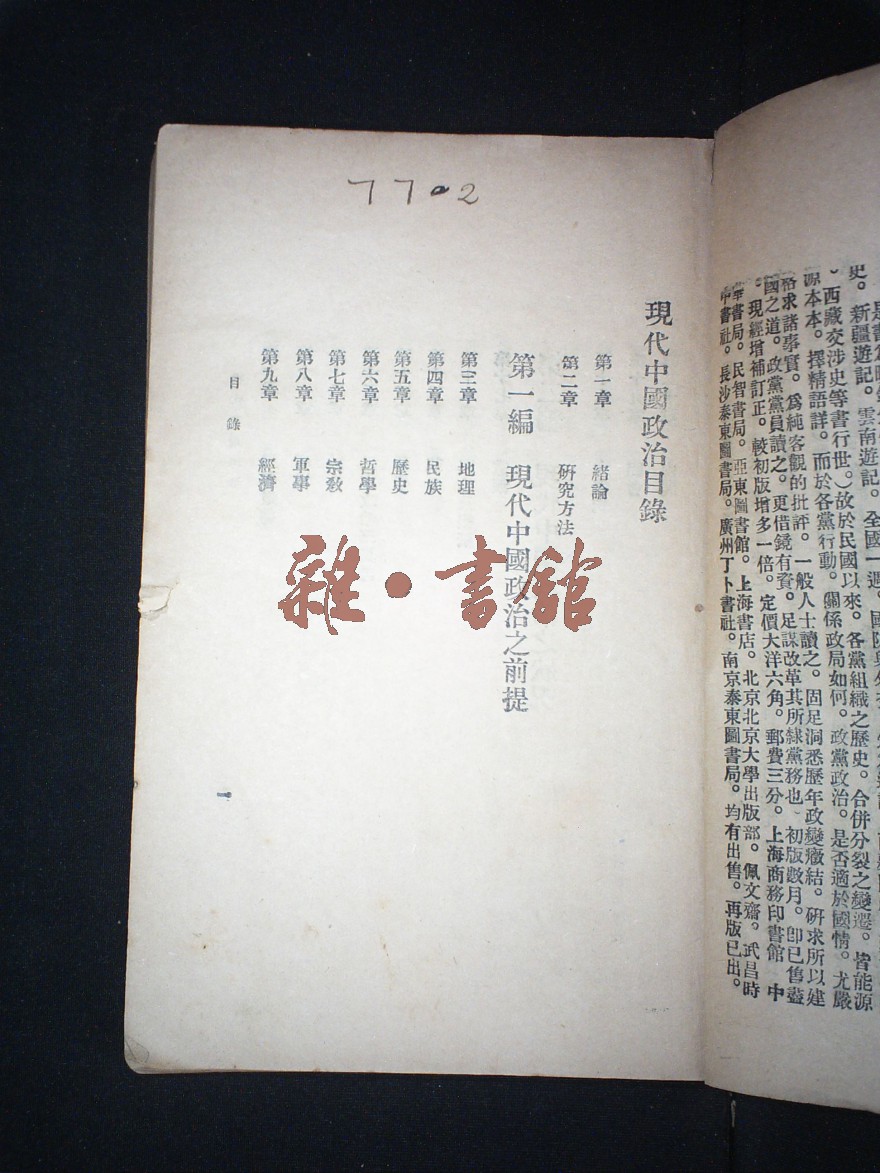 史。新疆遊記。雲南遊記。全國一週。國防與外
。西藏交涉史等書行世。）故於民國以來。各黨組織之歷史。合併分裂之變遷。皆能源
源本本。擇精語詳。而於各黨行動。關係政局如何。政黨政治。是否適於國情。尤嚴
格求諸事實。爲純客觀的批評。一般人士讀之。固足洞悉歷年政變癥結。研求所以建
國之道。政黨黨員讀之。更借鏡有資。足謀改革其所隸黨務也。初版數月。卽已售蓋
。現經增補訂正。較初版增多一倍。定價大洋六角。郵費三分。上海商務印書館 中
華書局。民智書局。亞東圖書館。上海書店。北京北京大學出版部。佩文齋。武昌時
中書社。長沙泰東圖書局。廣州丁卜書社。南京泰東圖書局。均有出售。再版已出。
77-2
現代中國政治目錄
第一章 緒論
第二章 研究方法
第一編 現代中國政治之前提
第三章 地理
第四章 民族
第五章 歷史
第六章 哲學
第七章 宗教
第八章 軍事
第九章 經濟
目錄
一
雜·書館